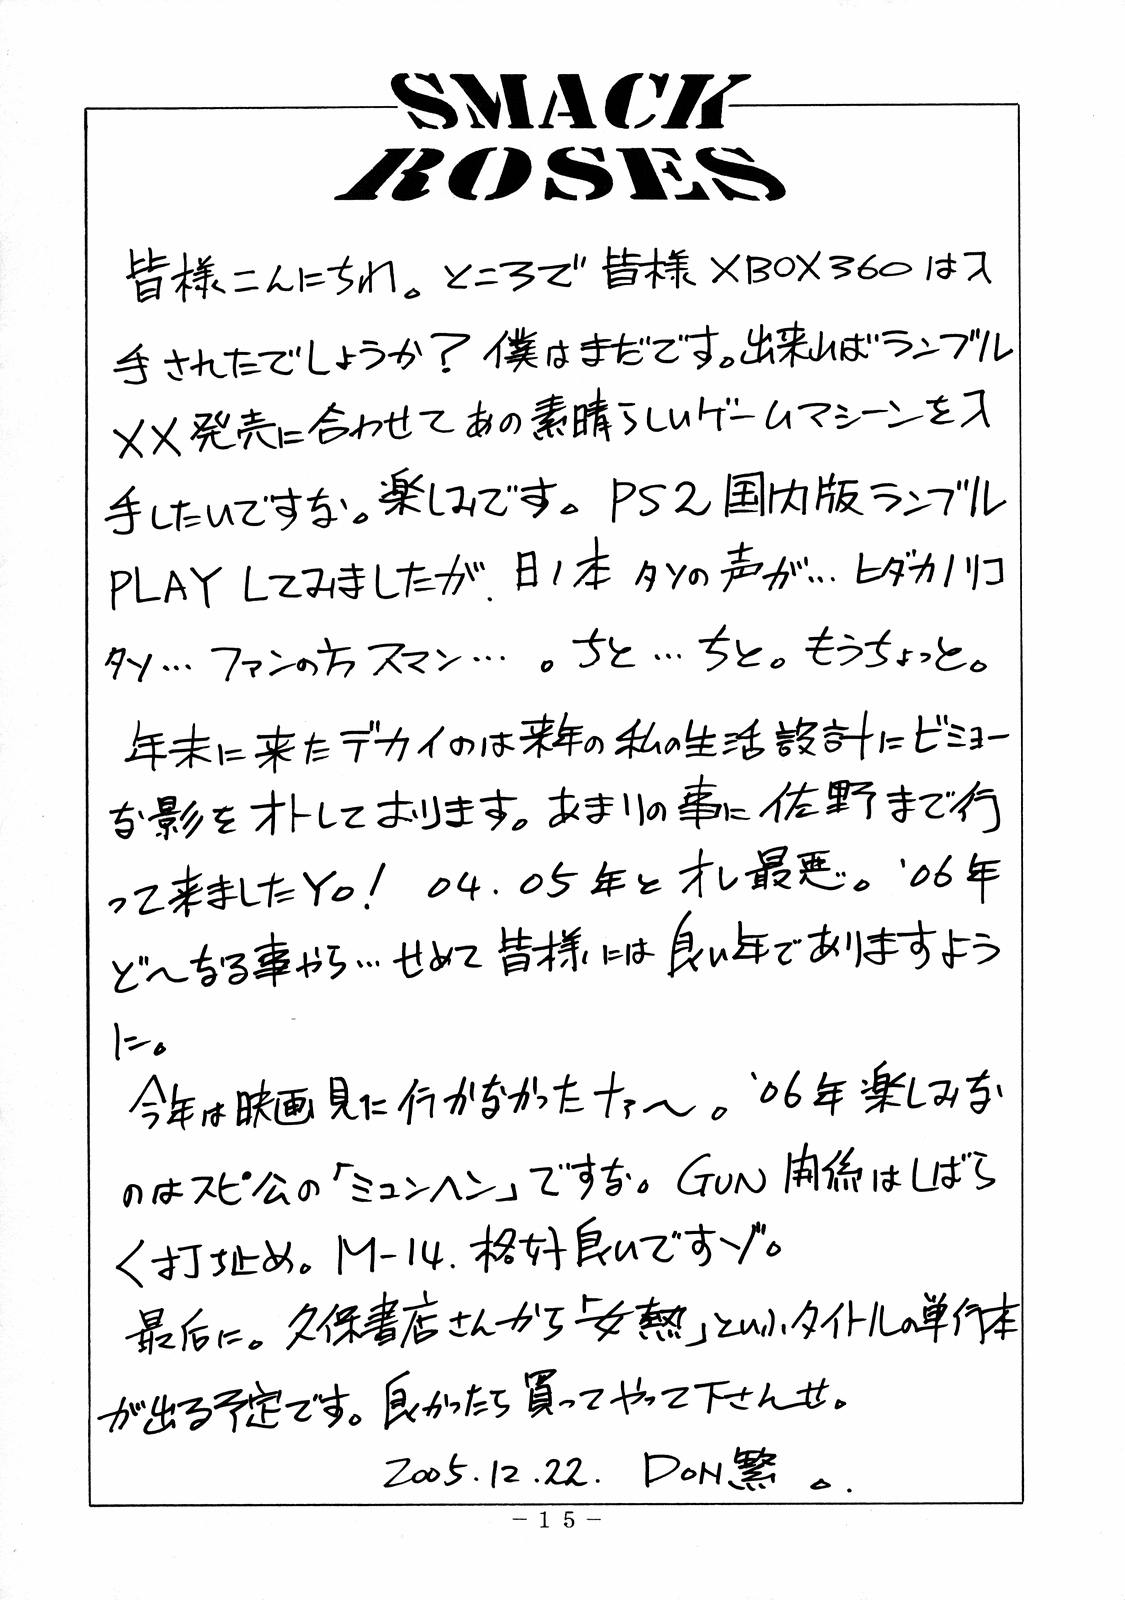 SMACK
ROSES
皆様こんにちわ。ところで皆様XBOX360は入
手されたでしょうか？僕はまだです。出来ればランブル
XX発売に合わせてあの素晴らしいゲームマシーンを入
手したいですな。楽しみです。PS2国内版ランブル
PLAYしてみましたが、日ノ本タソの声が…ヒダカノリコ
タソ…ファンの方スマン…。ちと…ちと。もうちょっと。
年末に来たデカイのは来年の私の生活設計にビミョー
な影をオトしております。あまりの事に佐野まで行
って来ましたYo！04.05年とオレ最悪。'06年
ど〜なる事やら…せめて皆様には良い年でありますよう
に。
今年は映画見に行かなかったナァ〜。'06年楽しみな
のはスピ公の「ミュンヘン」ですな。GUN関係はしばら
く打ち止め。M-14.格好良いですゾ。
最后に。久保書店さんから「女熱」といふタイトルの単行本
が出る予定です。良かったら買ってやって下さんせ。
2005.12.22. DON繁。.
－15－